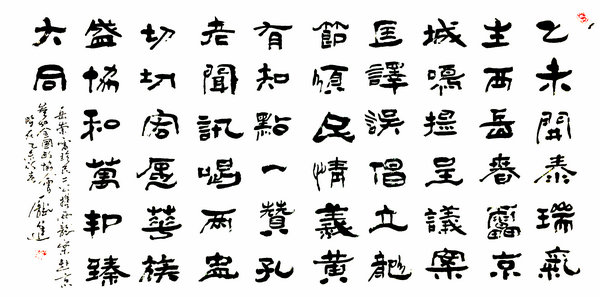 乙未開泰瑞氣
生西岳春雷京
城鳴提呈議案
匡譯誤倡立龍
節頌民情羲黃
有知點一贊孔
老聞訊喝兩盅
切切宿愿華族
盛協和萬邦臻
大同